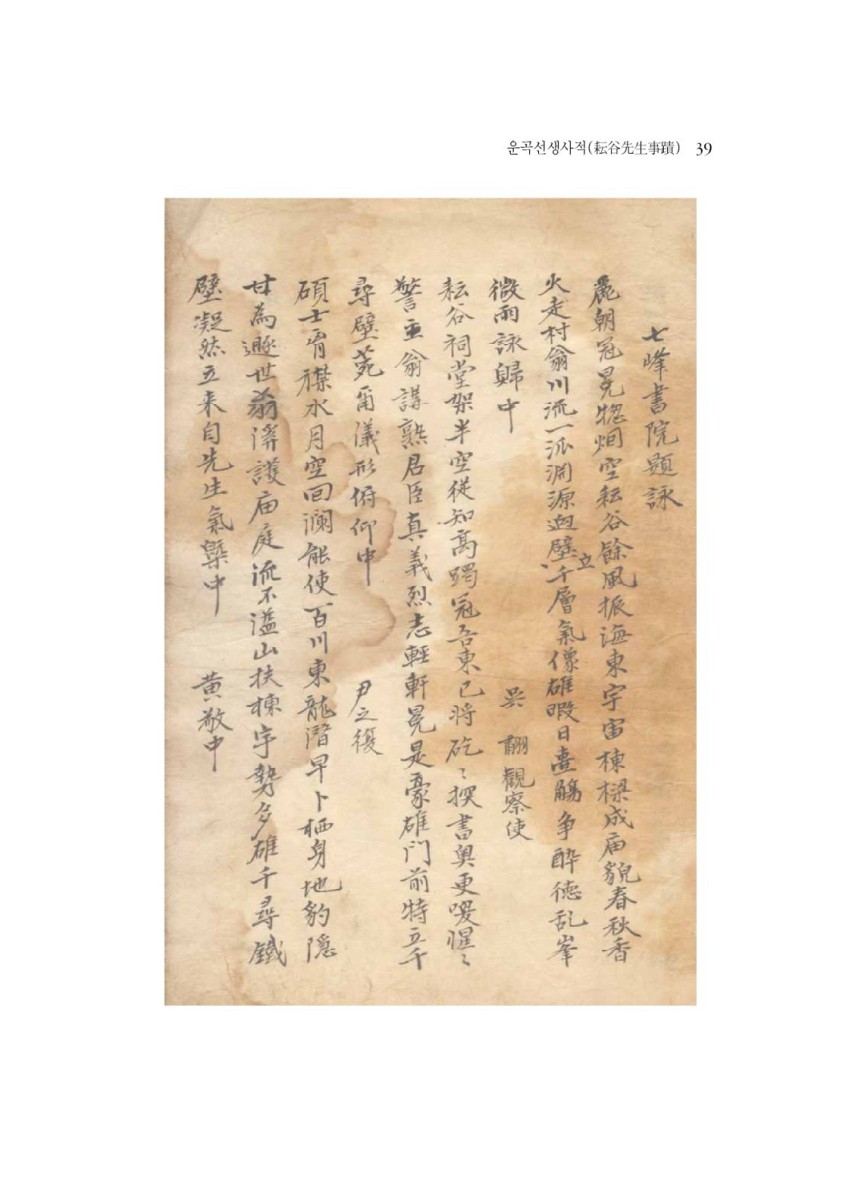 운곡선생사적(耘谷先生事蹟) 39
七峰書院題詠
麗朝冠冕揔烟空耘谷餘風振海東宇宙棟樑成庙貌春秋香
火走村翁川流一派淵源逈壁立千層氣像雄暇日壺觴争醉德乱峯
微雨詠歸中
吴翿觀察使
耘谷祠堂架半空從知高躅冠吾東已將矻〻探書奧更喚惺〻
警主翁講熟君臣真義烈志輕軒冕是豪雄門前特立千
尋壁菀甭儀形俯仰中
尹之復
碩士胷襟水月空回瀾能使百川東龍潛早卜栖身地豹隱
甘為遯世翁溪護庙庭流不溢山扶棟宇勢多雄千尋鐵
壁凝然立来自先生氣槩中
黄敬中